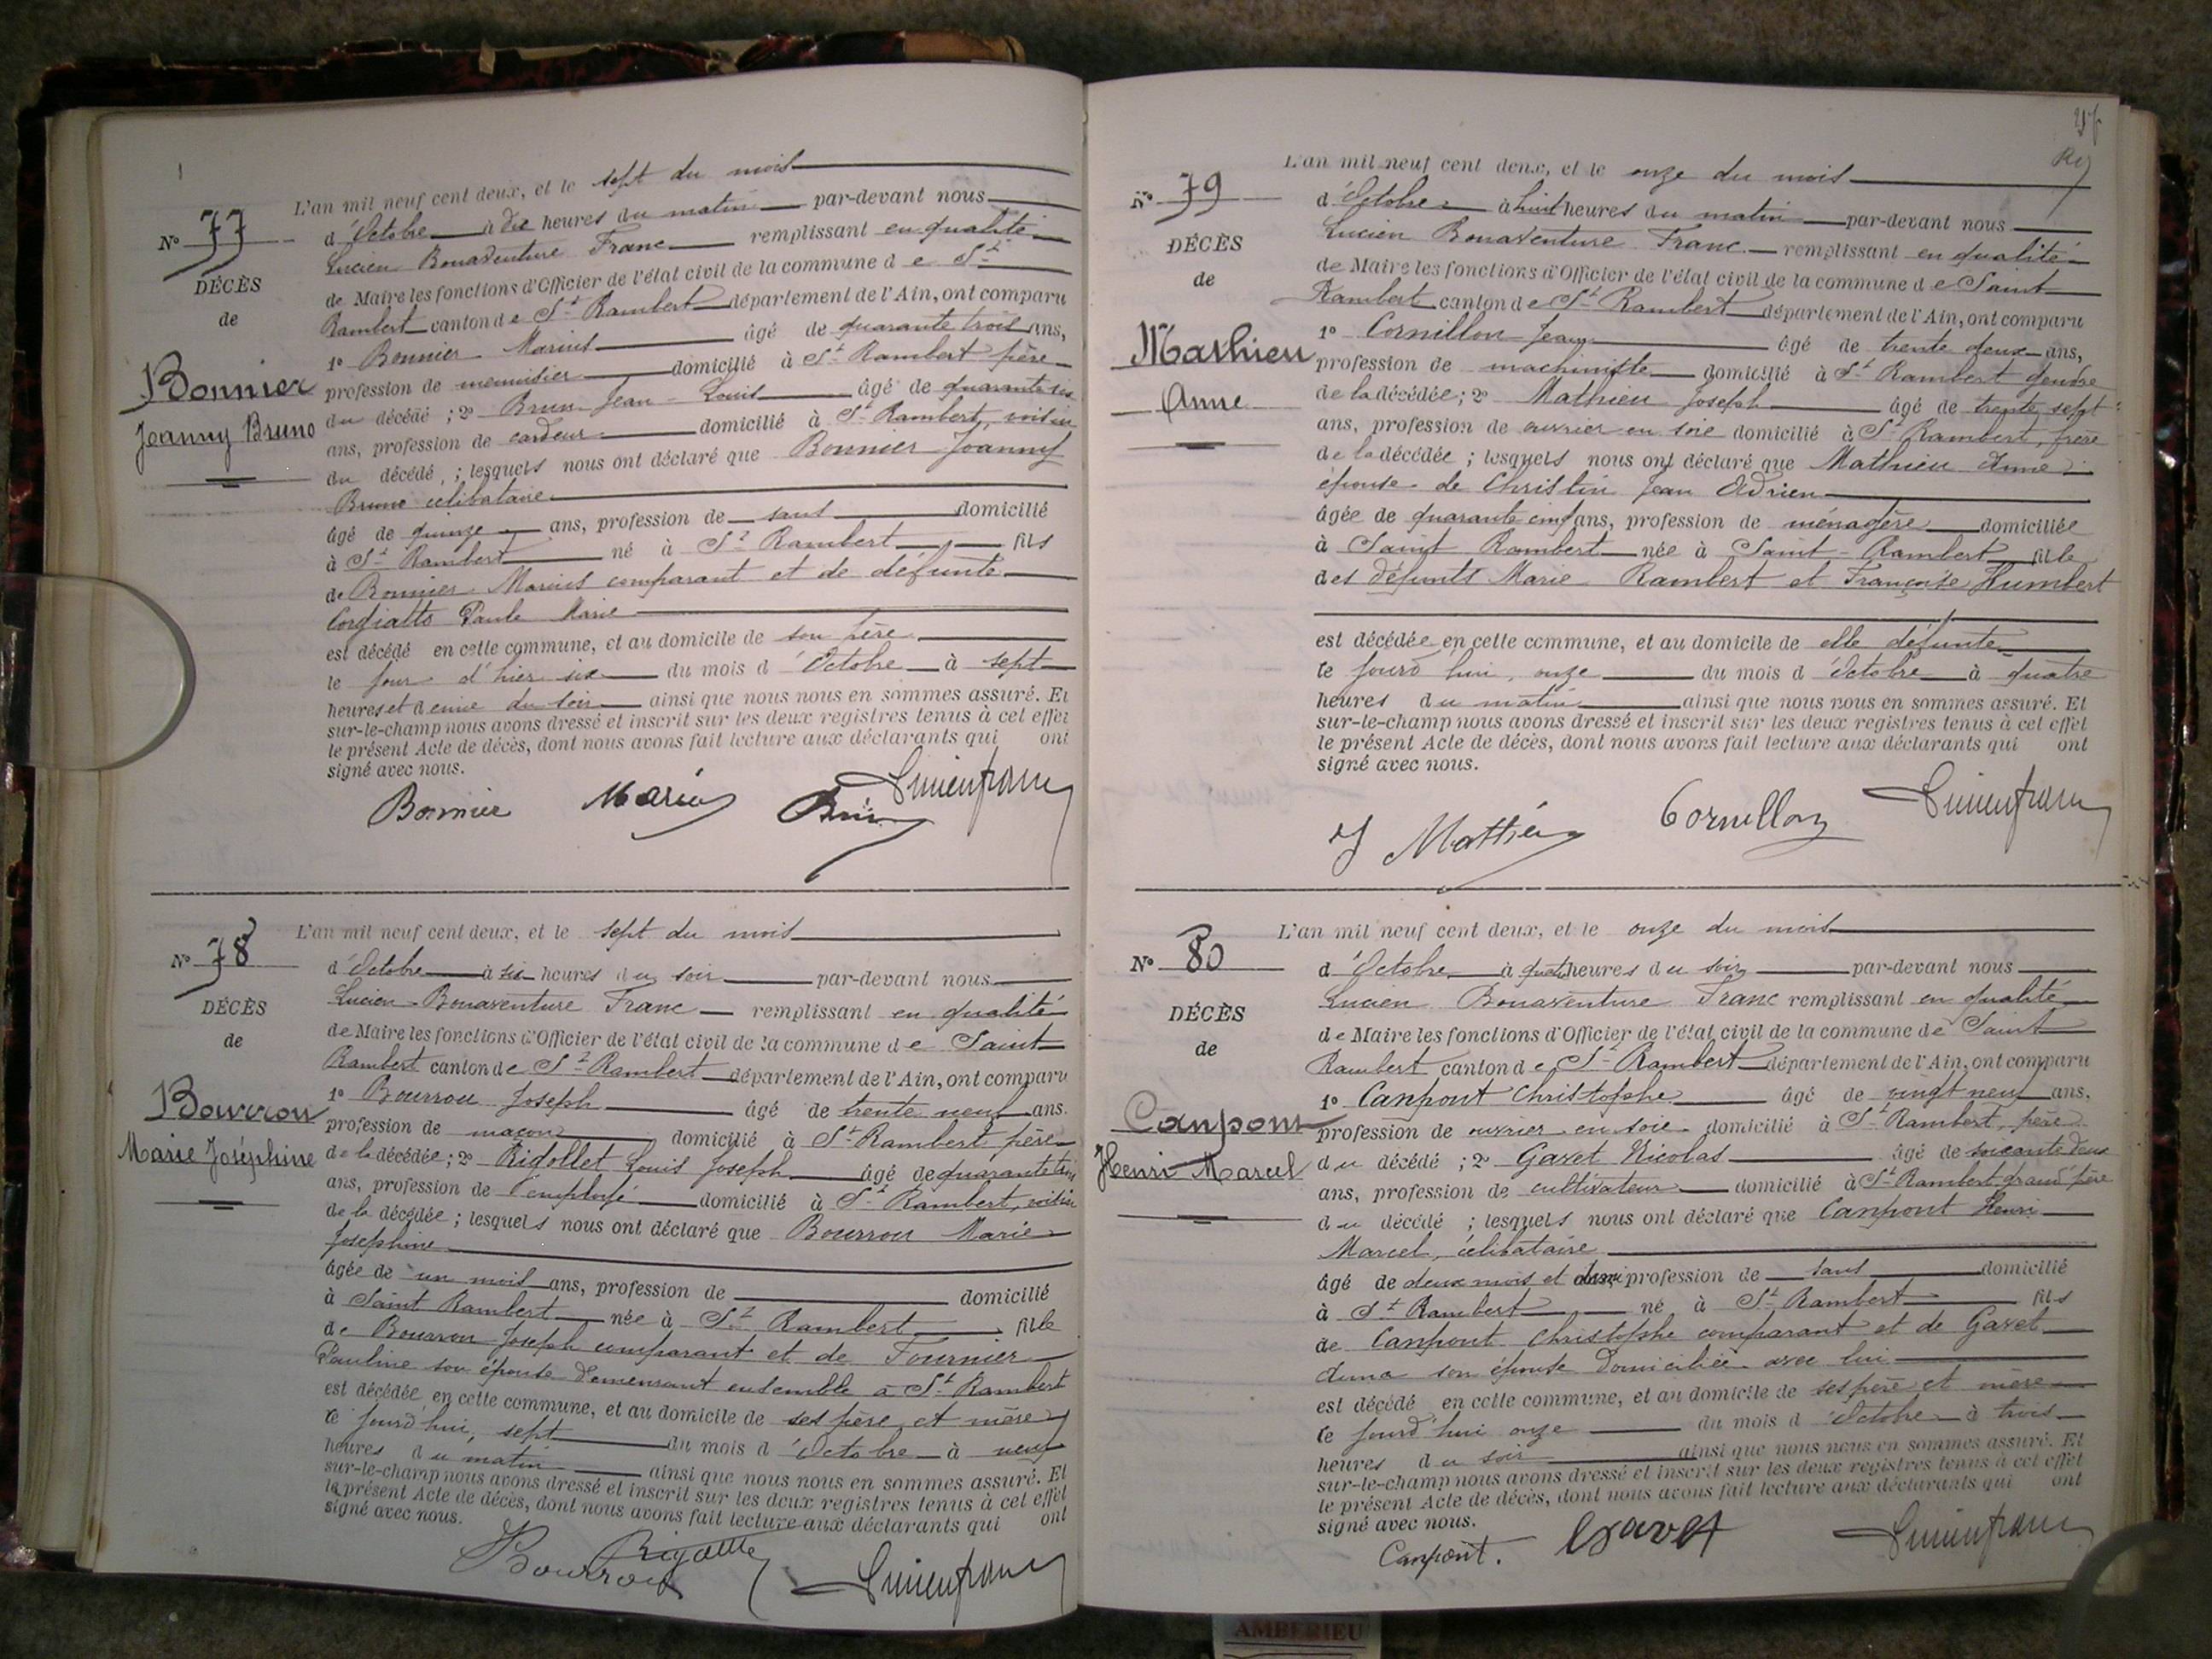 N° 77
DÉCÈS
de
Bonnier
Jeanny Bruno
L'an mil neuf cent deux, et le sept du mois
d'Octobre à dix heures du matin par-devant nous
Lucien Bonaventure Franc remplissant en qualité
de Maire les fonctions d'Officier de l'état civil de la commune de St
Rambert canton de St Rambert département de l'Ain, ont comparu
1° Bonnier Marius âgé de quarante trois ans,
profession de menuisier domicilié à St Rambert père
du décédé ; 2° Brun Jean-Louis âgé de quarante six
ans, profession de cardeur domicilié à St Rambert, voisin
du décédé, ; lesquels nous ont déclaré que Bonnier Joanny
Bruno célibataire
âgé de quinze ans, profession de sans domicilié
à St Rambert né à St Rambert fils
de Bonnier Marius comparant et de défunte
Paule Marie
est décédé en cette commune, et au domicile de son père
le jour d'hier six du mois d'Octobre à sept
heures et demie du soir ainsi que nous nous en sommes assuré. Et
sur-le-champ nous avons dressé et inscrit sur les deux registres tenus à cet effet
le présent Acte de décès, dont nous avons fait lecture aux déclarants qui ont
signé avec nous.
Bonnier Marius Brun Lucien franc
N° 78
DÉCÈS
de
Bourrou
Marie Joséphine
L'an mil neuf cent deux, et le sept du mois
d'Octobre à six heures du soir par-devant nous
Lucien-Bonaventure Franc remplissant en qualité
de Maire les fonctions d'Officier de l'état civil de la commune de Saint
Rambert canton de St Rambert département de l'Ain, ont comparu
1° Bourrou Joseph âgé de trente neuf ans.
profession de maçon domicilié à St Rambert père
de la décédée ; 2° Rigollet Louis Joseph âgé de quarante trois
ans, profession de employé domicilié à St Rambert, voisin
de la décédée ; lesquels nous ont déclaré que Bourrou Marie
Josephine
âgée de un mois ans, profession de domicilié
à Saint Rambert née à St Rambert fille
de Bourrou Joseph comparant et de Tournier
Pauline son épouse demeurant ensemble à St Rambert
est décédée en cette commune, et au domicile de ses père et mère
ce jourd'hui, sept du mois d'Octobre à neuf
heures du matin ainsi que nous nous en sommes assuré. Et
sur-le-champ nous avons dressé et inscrit sur les deux registres tenus à cet effet
le présent Acte de décès, dont nous avons fait lecture aux déclarants qui ont
signé avec nous.
Bourrou Rigollet Lucien franc
N° 79
DÉCÈS
de
Mathieu
Anne
L'an mil neuf cent deux, et le onze du mois
d'Octobre à huit heures du matin par-devant nous
Lucien Bonaventure Franc remplissant en qualité
de Maire les fonctions d'Officier de l'état civil de la commune de Saint
Rambert canton de St Rambert département de l'Ain, ont comparu
1° Cornillon Jean âgé de trente deux ans,
profession de machiniste domicilié à St Rambert gendre
de la décédée ; 2° Mathieu Joseph âgé de trente sept
ans, profession de ouvrier en soie domicilié à St Rambert, frère
de la décédée ; lesquels nous ont déclaré que Mathieu Anne
épouse de Christin Jean Adrien
âgée de quarante cinq ans, profession de ménagère domiciliée
à Saint Rambert née à Saint-Rambert fille
des défunts Marie Rambert et Françoise Humbert
est décédée en cette commune, et au domicile de elle défunte
ce jourd'hui, onze du mois d'Octobre à quatre
heures du matin ainsi que nous nous en sommes assuré. Et
sur-le-champ nous avons dressé et inscrit sur les deux registres tenus à cet effet
le présent Acte de décès, dont nous avons fait lecture aux déclarants qui ont
signé avec nous.
J Mathieu Cornillon Lucien franc
N° 80
DÉCÈS
de
Canpont
Henri Marcel
L'an mil neuf cent deux, et le onze du mois
d'Octobre à quatre heures du soir par-devant nous
Lucien Bonaventure Franc remplissant en qualité
de Maire les fonctions d'Officier de l'état civil de la commune de Saint
Rambert canton de St Rambert département de l'Ain, ont comparu
1° Canpont Christophe âgé de vingt neuf ans,
profession de ouvrier en soie domicilié à St Rambert, père
du décédé ; 2° Gavet Nicolas âgé de soixante deux
ans, profession de cultivateur domicilié à St Rambert grand'père
du décédé ; lesquels nous ont déclaré que Canpont Henri
Marcel, célibataire
âgé de deux mois et demi profession de sans domicilié
à St Rambert né à St Rambert fils
de Canpont Christophe comparant et de Gavet
Anna son épouse domiciliée avec lui
est décédé en cette commune, et au domicile de ses père et mère
ce jourd'hui onze du mois d'Octobre à trois
heures du soir ainsi que nous nous en sommes assuré. Et
sur-le-champ nous avons dressé et inscrit sur les deux registres tenus à cet effet
le présent Acte de décès, dont nous avons fait lecture aux déclarants qui ont
signé avec nous.
Canpont. Gavet Lucien franc
AMBERIEU